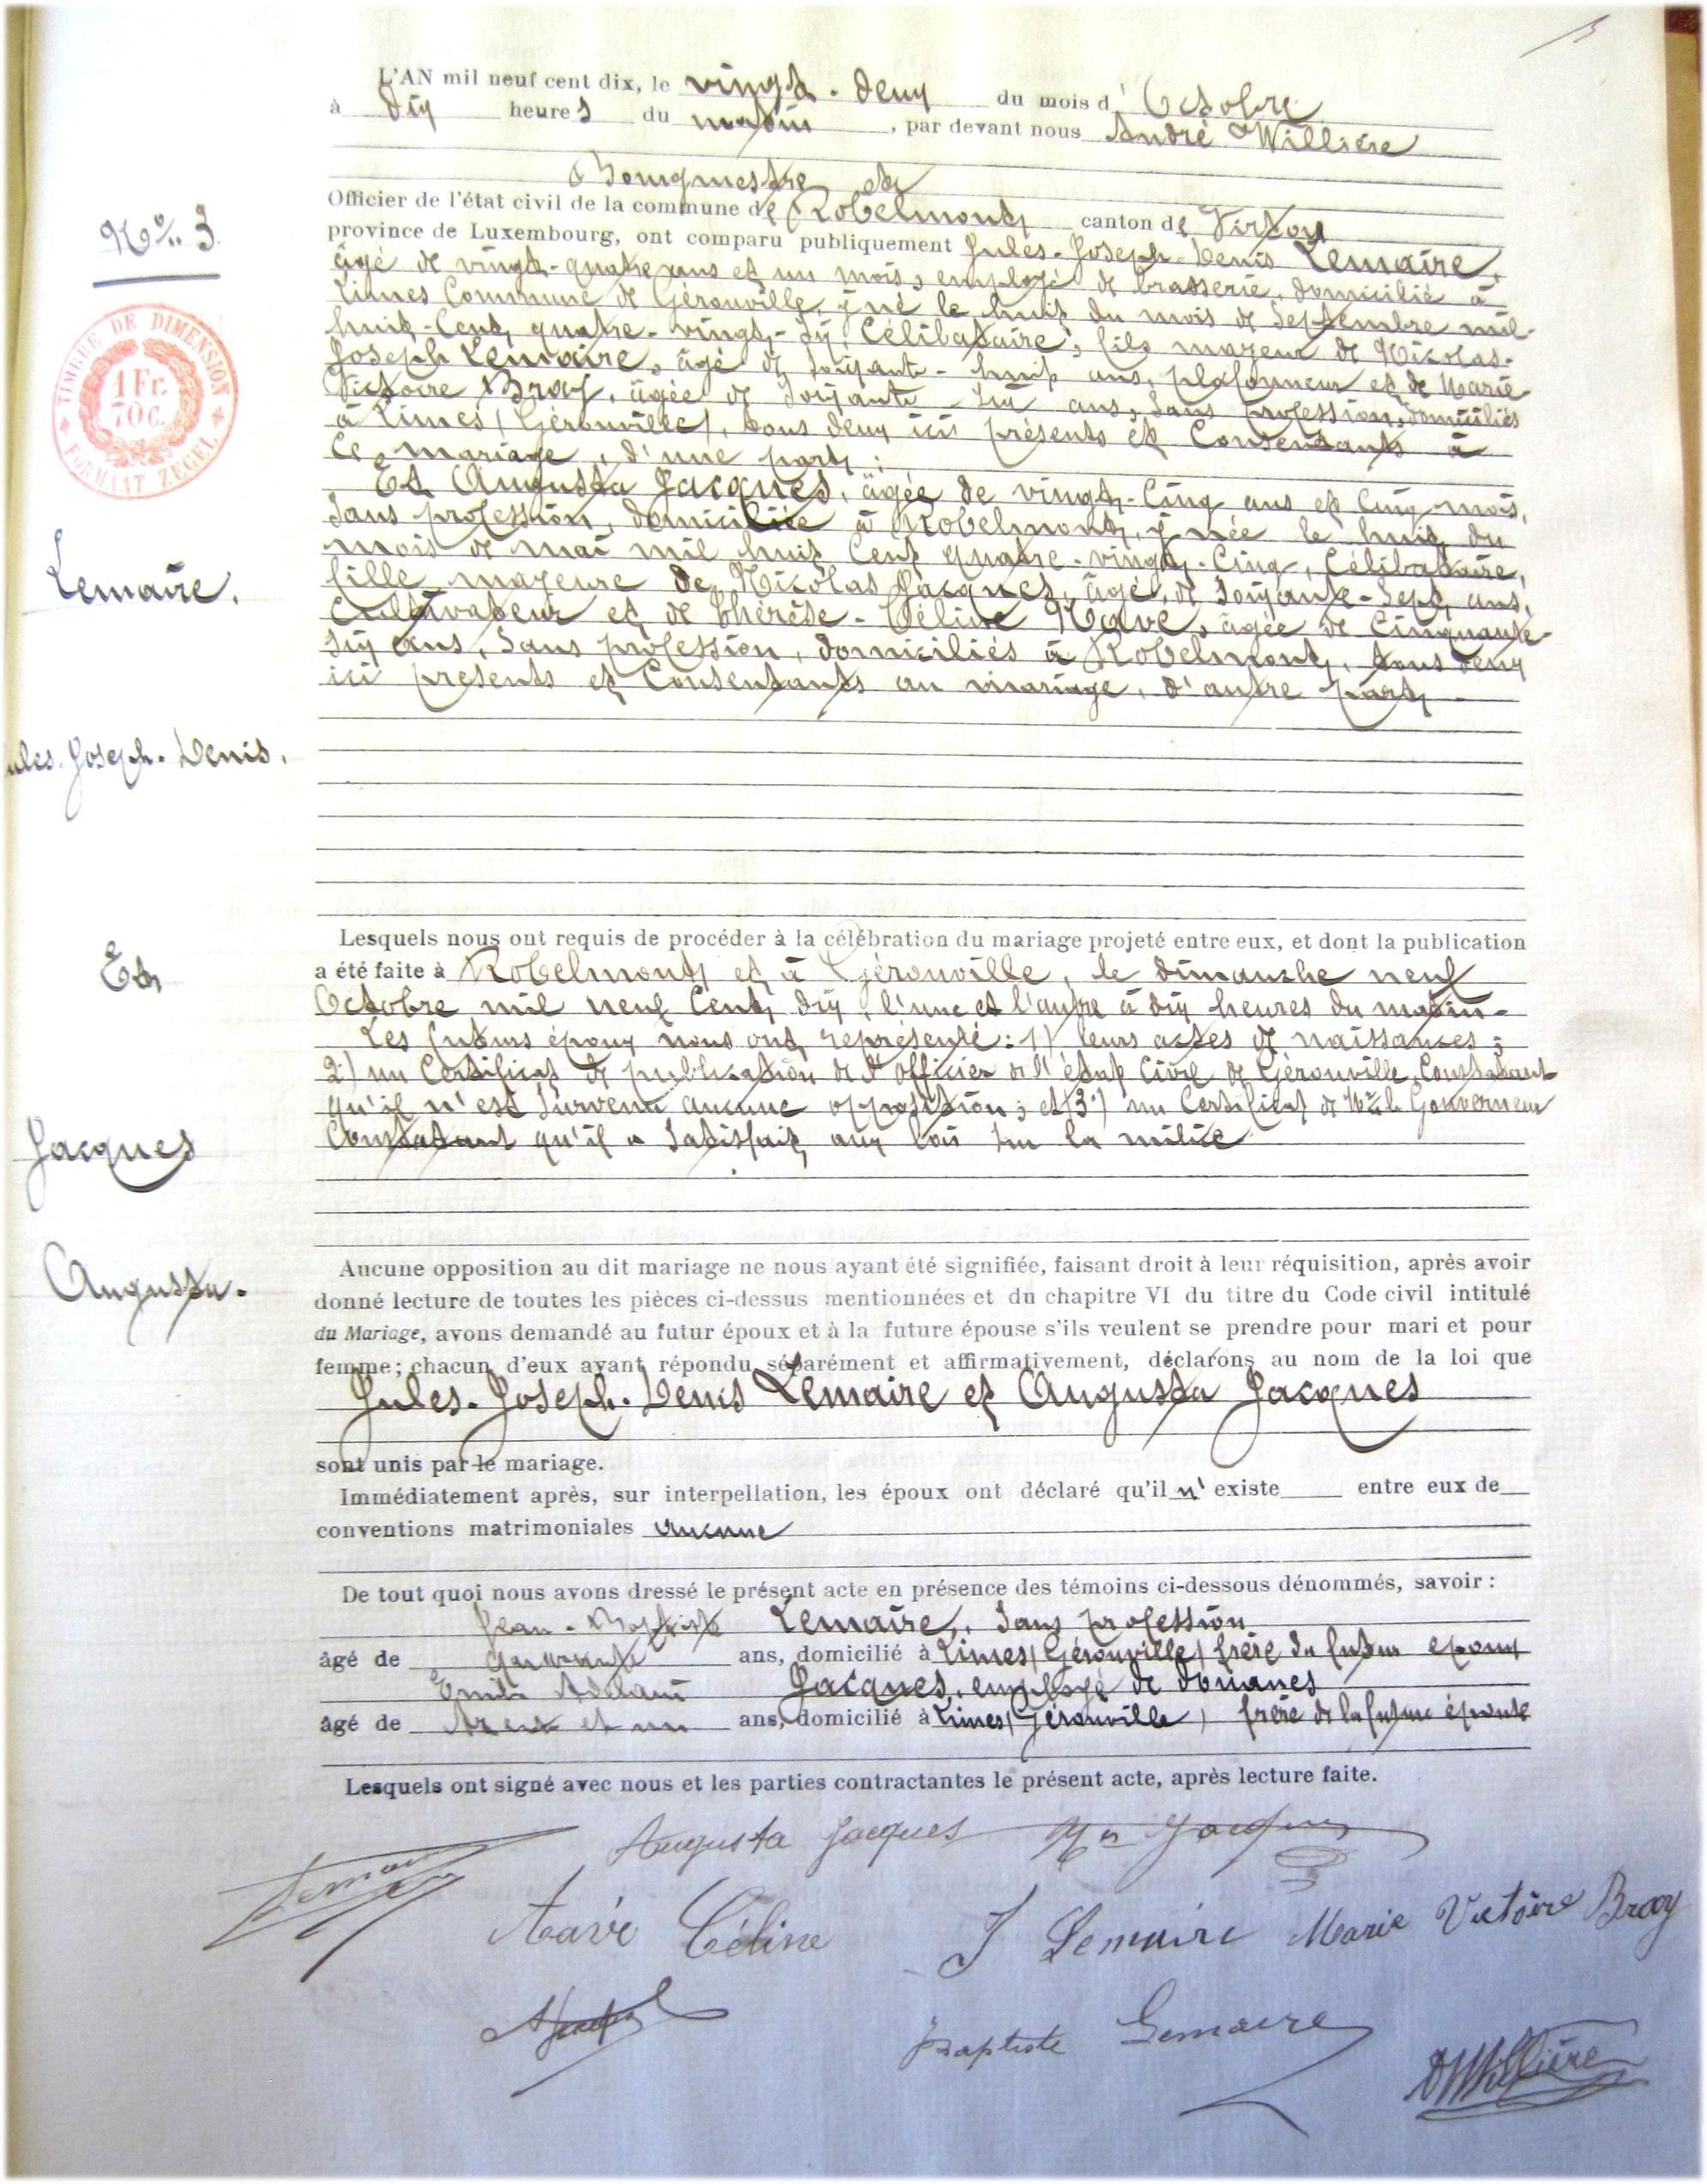 L'AN mil neuf cent dix, le vingt-deux du mois d'Octobre
à dix heures du matin, par devant nous André Willière
Bourgmestre et
Officier de l'état civil de la commune de Robelmont canton de Virton
province de Luxembourg, ont comparu publiquement Jules-Joseph-Denis Lemaire,
âgé de vingt-quatre ans et un mois, employé de brasserie, domicilié à
Limes Commune de Gérouville, y né le huit du mois de Septembre mil-
huit-Cent quatre-vingt-six, Célibataire, fils majeur de Nicolas-
Joseph Lemaire, âgé de soixante-huit ans, plafonneur et de Marie
Victoire Bray, âgée de soixante six ans, sans profession, domiciliés
à Limes (Gérouville), tous deux ici présents et Consentants à
ce mariage, d'une part;
Et Augusta Jacques, âgée de vingt-Cinq ans et Cinq mois,
sans profession, domiciliée à Robelmont, y née le huit du
mois de mai mil huit Cent quatre-vingt-Cinq, Célibataire,
fille majeure de Nicolas Jacques, âgé de soixante-sept ans,
Cultivateur et de Thérèse-Céline Havé, âgée de Cinquante-
six ans, sans profession, domiciliés à Robelmont, tous deux
ici présents et Consentants au mariage, d'autre part
N° 3.
TIMBRE DE DIMENSION
1 Fr.
70 C.
FORMAAT ZEGEL
Lemaire.
ules-Joseph-Denis.
Et
Jacques
Augusta.
Lesquels nous ont requis de procéder à la célébration du mariage projeté entre eux, et dont la publication
a été faite à Robelmont et à Gérouville, le dimanche neuf
Octobre mil neuf Cent dix, l'une et l'autre à dix heures du matin-
Les futurs époux nous ont représenté: 1) leurs actes de naissances;
2) un Certificat de publication de l'Officier de l'état Civil de Gérouville Constatant
qu'il n'est survenu aucune opposition; et 3°) un Certificat de Mr le Gouverneur
Constatant qu'il a satisfait aux lois sur la milice
Aucune opposition au dit mariage ne nous ayant été signifiée, faisant droit à leur réquisition, après avoir
donné lecture de toutes les pièces ci-dessus mentionnées et du chapitre VI du titre du Code civil intitulé
du Mariage, avons demandé au futur époux et à la future épouse s'ils veulent se prendre pour mari et pour
femme; chacun d'eux ayant répondu séparément et affirmativement, déclarons au nom de la loi que
Jules-Joseph-Denis Lemaire et Augusta Jacques
sont unis par le mariage.
Immédiatement après, sur interpellation, les époux ont déclaré qu'il n'existe entre eux de
conventions matrimoniales aucune
De tout quoi nous avons dressé le présent acte en présence des témoins ci-dessous dénommés, savoir :
Jean-Baptiste Lemaire, sans profession
âgé de quarante ans, domicilié à Limes (Gérouville) frère du futur époux
Jacques, employé de douanes
âgé de trente et un ans, domicilié à Limes (Gérouville) frère de la future épouse
Lesquels ont signé avec nous et les parties contractantes le présent acte, après lecture faite.
Augusta Jacques Nas Jacques
Lemaire
Havé Céline J Lemaire Marie Victoire Bray
Baptiste Lemaire
AWillière